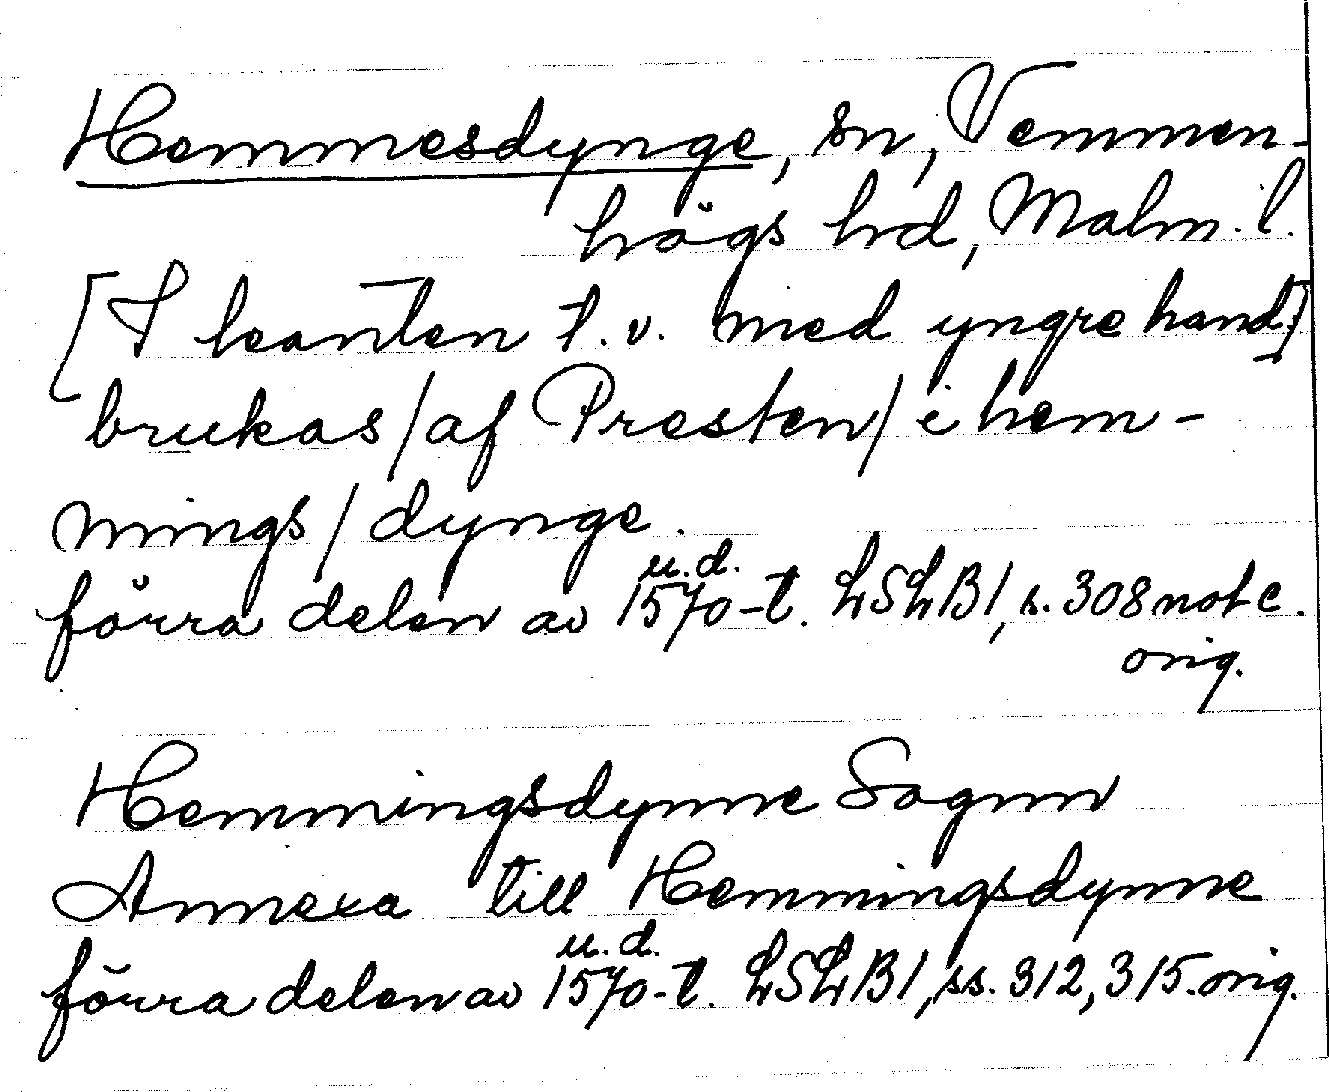 Hemmesdynge, sn, Vemmen-
högs hd, Malm. l.
[I kanten t.v. med yngre hand]
brukas/af Presten/i hem-
mings/dynge.
u.d.
förra delen av 1570-t. LSLB1, s. 308 not e.
orig.
Hemmingsdynne Sognn
Annexa till Hemmingsdynne
u.d.
förra delen av 1570-t. LSLB1, ss. 312, 315. orig.